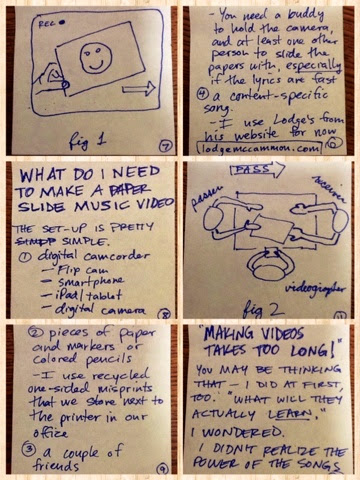 REC
fig 1
7
WHAT DO I NEED
TO MAKE A PAPER
SLIDE MUSIC VIDEO
THE SET-UP IS PRETTY
SIMPLE.
① digital camcorder
— Flip cam
— smartphone
— iPad/tablet
— digital camera
8
② pieces of paper
and markers or
colored pencils
— I use recycled
one-sided misprints
that we store next to
the printer in our
office
③ a couple of
friends
9
- You need a buddy
to hold the camera,
and at least one other
person to slide the
papers with, especially
if the lyrics are fast
④ a content-specific
song.
- I use Lodge's from
his website for now
lodgemccammon.com
10
PASS
passer
receiver
videographer
fig 2
11
"MAKING VIDEOS
TAKES TOO LONG!"
YOU MAY BE THINKING
THAT - I DID AT FIRST,
TOO. "WHAT WILL THEY
ACTUALLY LEARN,"
I WONDERED.
I DIDN'T REALIZE THE
POWER OF THE SONGS